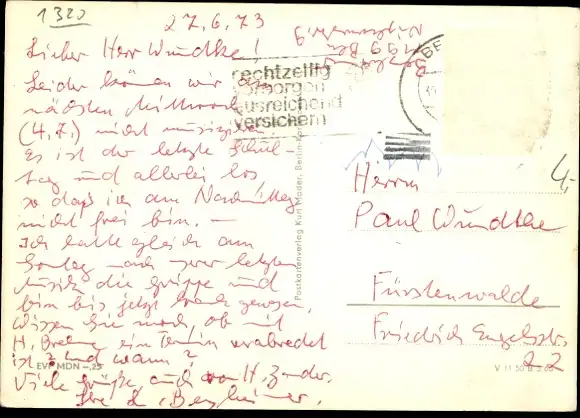 1320
27.6.73
Lieber Herr Wundtke!
Leider können wir am
nächsten Mittwoch
(4.7.) nicht musizieren.
Es ist der letzte Schul-
tag und allerlei los
so daß ich am Nachmittag
nicht frei bin. –
Ich hatte gleich am
Sonntag nach unserer letzten
Musik die Grippe und
bin bis jetzt krank gewesen.
Wissen Sie noch, ob mit
H. ein Termin verabredet
ist? und wann?
Viele Grüße, auch von H. Zander.
Ihre
EVP MDN -,25
rechtzeitig
vorsorgen
ausreichend
versichern
BE
Postkartenverlag Kurt Mader, Berlin
4,-
Herrn
Paul Wundtke
Fürstenwalde
Friedrich Engelsstr.
22
V 11 50 B